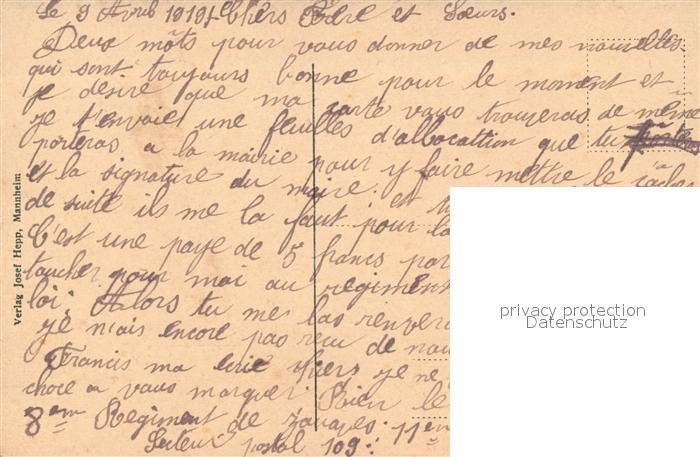 Le 9 Avril 1919 Chers Frère et Sœurs.
Deux môts pour vous donner de mes nouvelles
qui sont toujours bonne pour le moment et
je désire que ma carte vous trouveras de même
je t'envoie une feuilles d'allocattion que tu porteras
porteras a la mairie pour y faire mettre le cachet
et la signature du maire.
de suite ils me la faut pour la
C'est une paye de 5 francs par
toucher pour moi au regiment
loi. Alors tu me las renvera
je n'ais encore pas recu de nou
Francis ma écrie hiers je ne
chose a vous marquer. Rien le
8em Regiment de Zouaves. 11em
Secteur postal 109.
Verlag Josef Hepp, Mannheim
privacy protection
Datenschutz